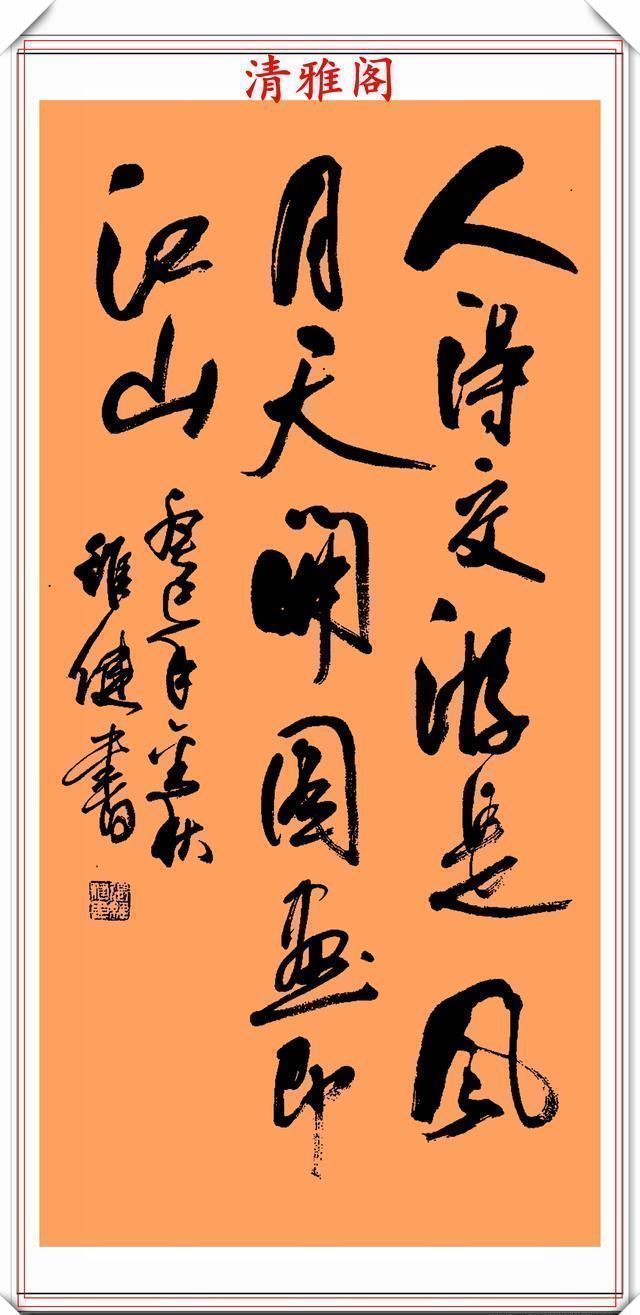 清雅阁
人得交游是风
月天开图画即
江山
癸巳年金秋
雅健书